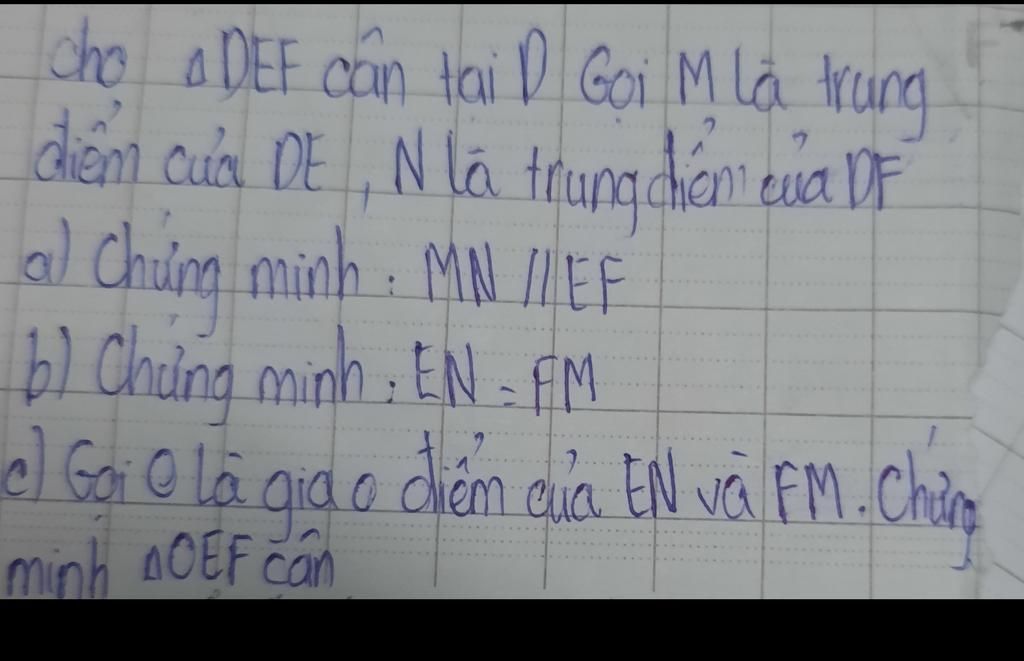 cho ΔDEF cân tai D Gọi M là trung
điểm của DE, N là trung điểm của DF
a) Chứng minh: MN // EF
b) Chứng minh: EN = FM
c) Gọi O là giao điểm của EN và FM. Chứng
minh ΔOEF cân